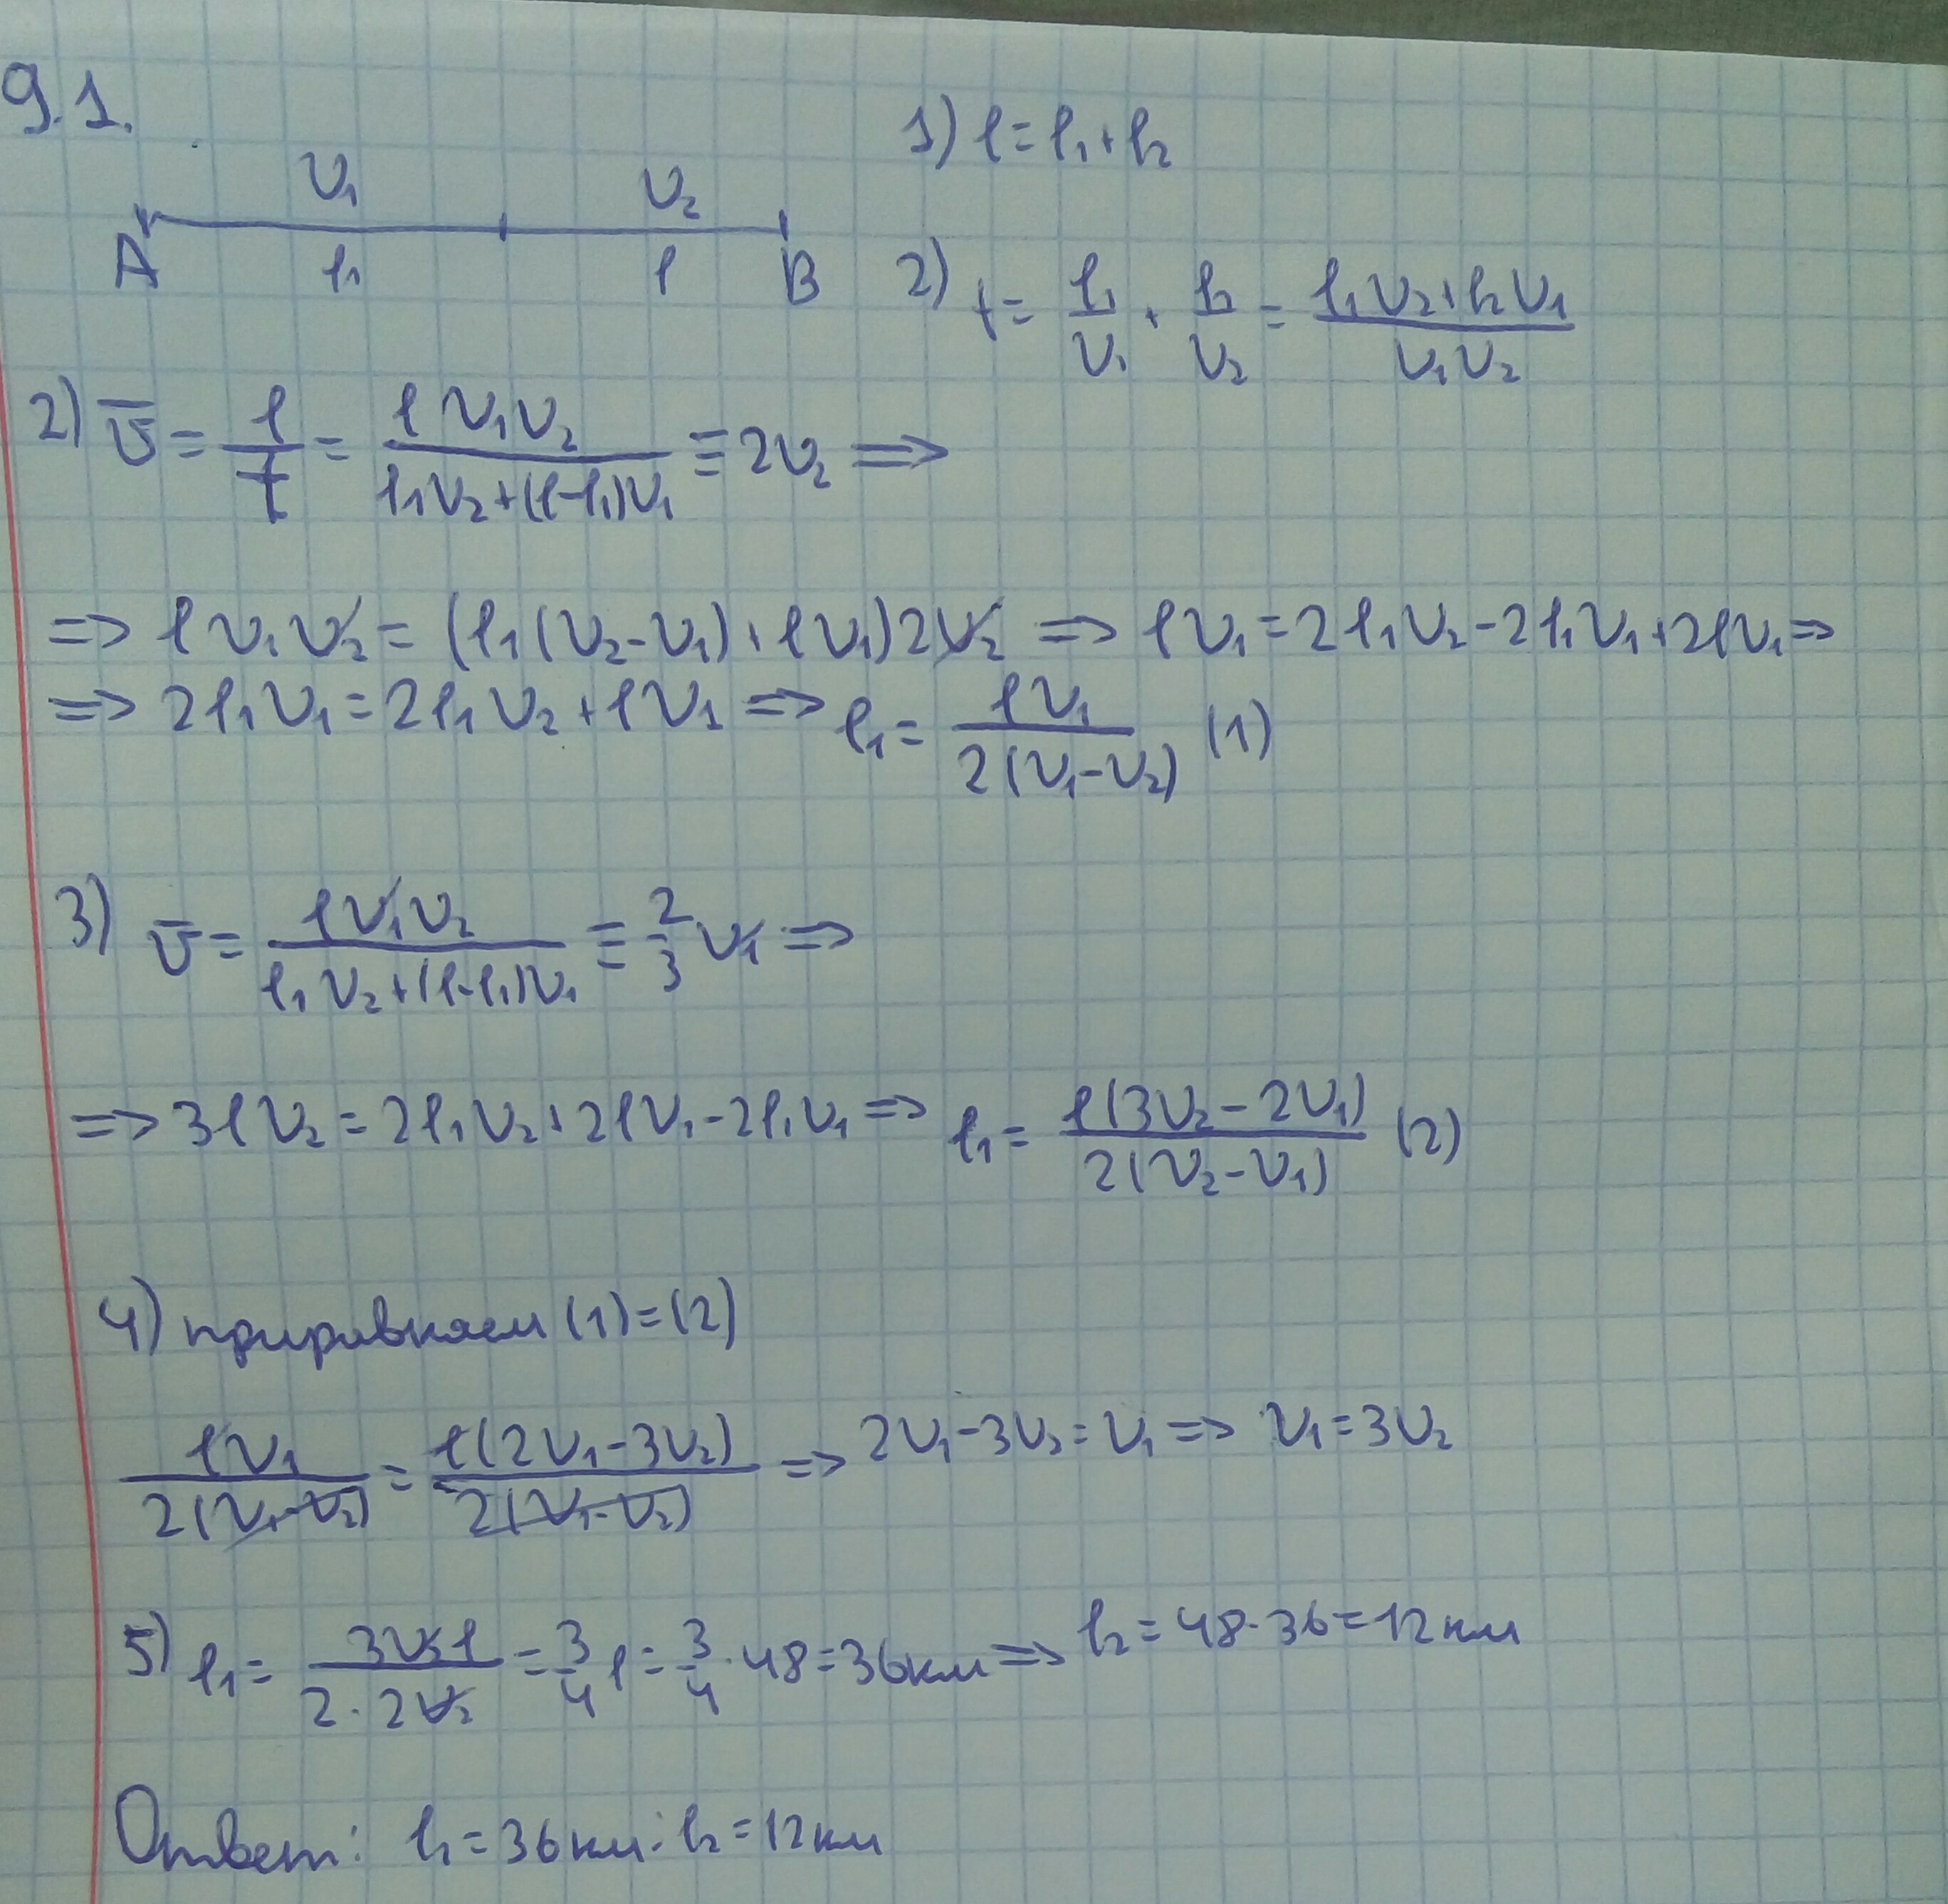 9.1.
1) l = l₁ + l₂
v₁ v₂
A l₁ l B
2) t = l₁/v₁ + l₂/v₂ = (l₁v₂ + l₂v₁)/(v₁v₂)
2) v̄ = l/t = (l v₁v₂)/(l₁v₂ + (l - l₁)v₁) ≡ 2v₂ =>
=> l v₁v₂ = (l₁(v₂ - v₁) + l v₁)2v₂ => l v₁ = 2l₁v₂ - 2l₁v₁ + 2l v₁ =>
=> 2l₁v₁ = 2l₁v₂ + l v₁ => l₁ = (l v₁)/(2(v₁ - v₂)) (1)
3) v̄ = (l v₁v₂)/(l₁v₂ + (l - l₁)v₁) ≡ 2/3 v₁ =>
=> 3l v₂ = 2l₁v₂ + 2l v₁ - 2l₁v₁ => l₁ = (l(3v₂ - 2v₁))/(2(v₂ - v₁)) (2)
4) приравняем (1)=(2)
(l v₁)/(2(v₁ - v₂)) = (l(2v₁ - 3v₂))/(2(v₁ - v₂)) => 2v₁ - 3v₂ = v₁ => v₁ = 3v₂
5) l₁ = (3v₂l)/(2·2v₂) = 3/4 l = 3/4 · 48 = 36км => l₂ = 48 - 36 = 12км
Ответ: l₁ = 36км; l₂ = 12км